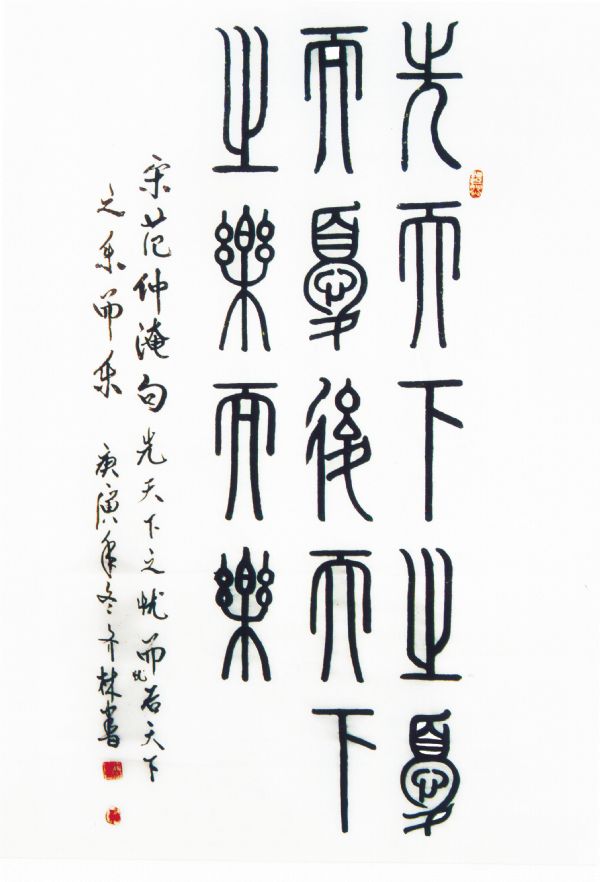 先天下之憂
而憂後天下
之樂而樂
宋范仲淹句先天下之忧而忧后天下
之乐而乐 庚寅年冬林書